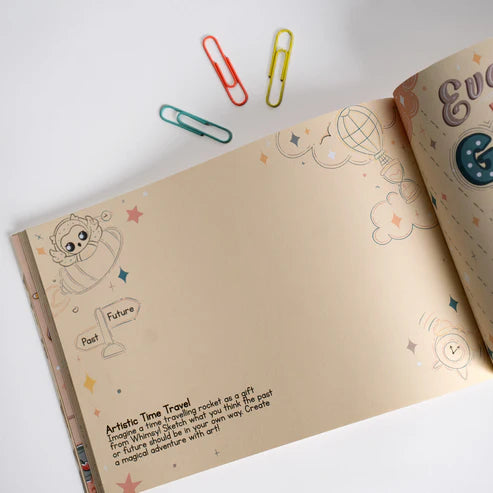 Past
Future
Artistic Time Travel
Imagine a time travelling rocket as a gift
from Whimsy! Sketch what you think the past
or future should be in your own way. Create
a magical adventure with art!